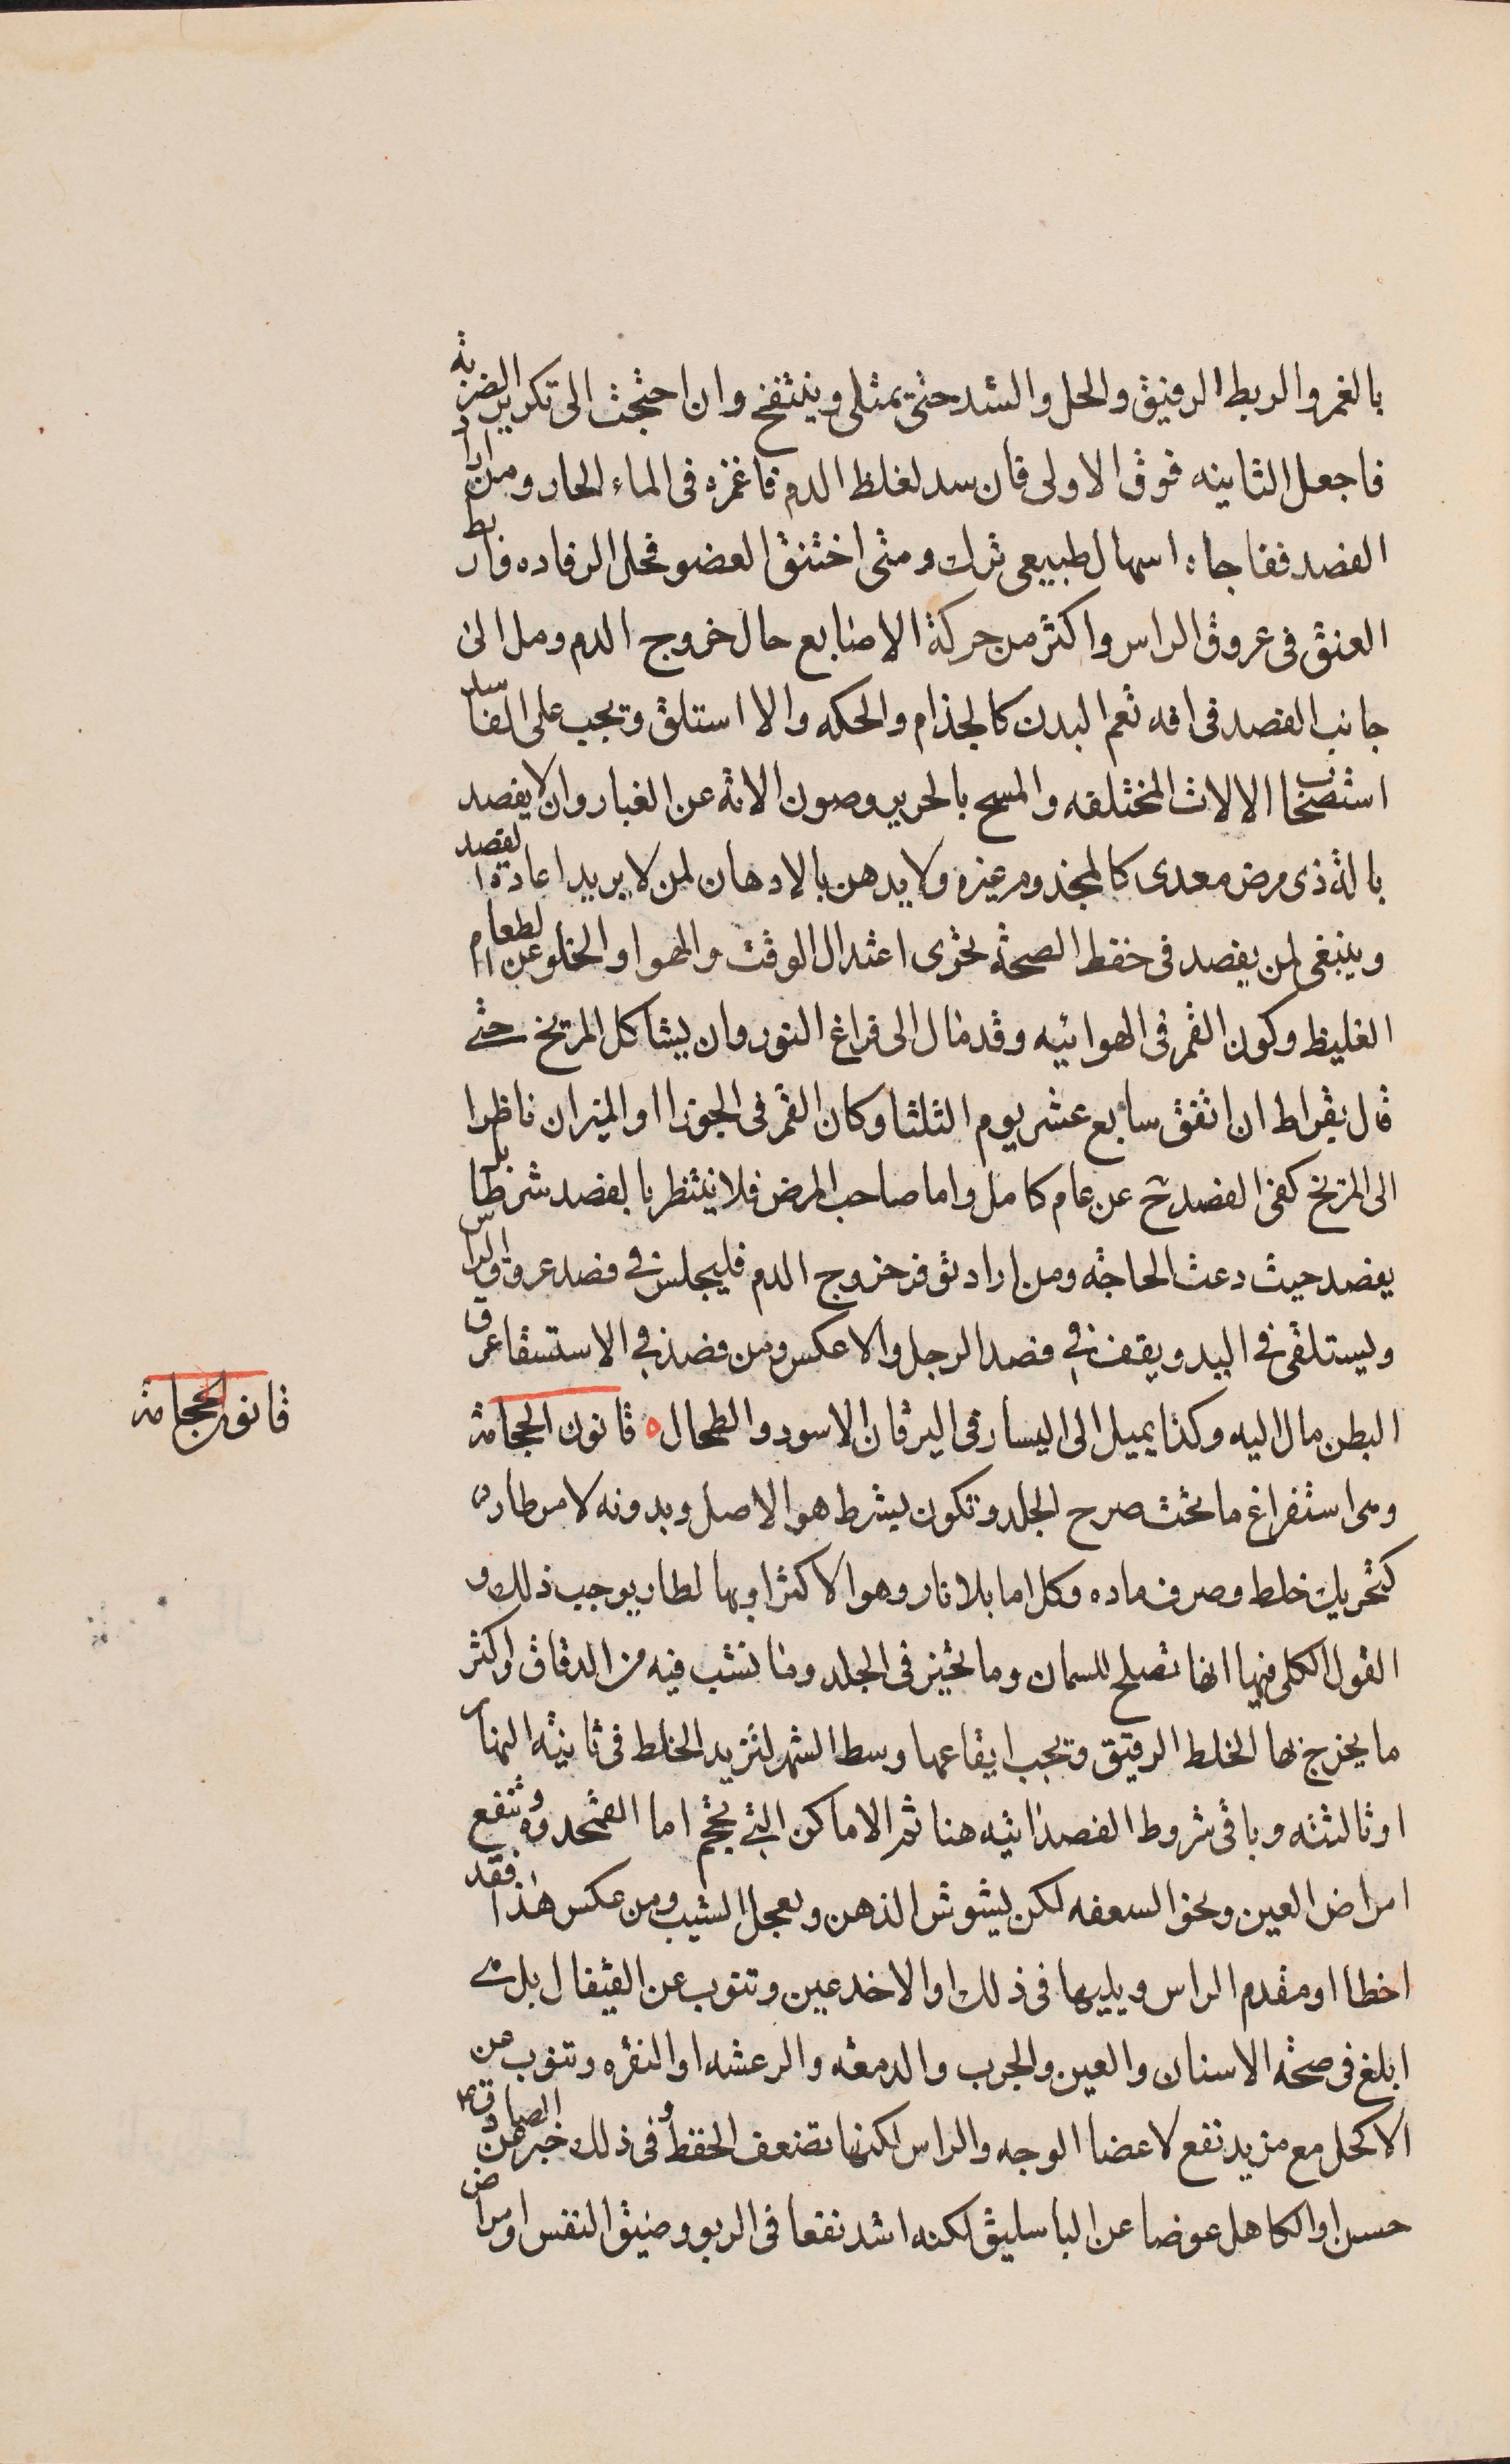 بالغمر والربط الرفيق والحل والشد حتى يمثلى وينتفخ وان احتجت الى تكرير الضربة
فاجعل الثانيه فوق الاولى فان سد لغلظ الدم فاغمزه فى الماء الحار ومن اراد
الفصد ففاجاه اسهال طبيعى ترك ومتى اختنق العضو فحلل الرفاده واربط
العنق فى عروق الراس واكثر من حركة الاصابع حال خروج الدم ومل الى
جانب الفصد فى افه تعم البدن كالجذام والحكه والا استلق ويجب على الفاسد
استصحاب الالات المختلفه والمسح بالحرير وصون الاته عن الغبار وان لا يفصد
بالة ذى مرض معدى كالمجذوم غيره ولا يدهن بالادهان لمن لا يريد اعادة الفصد
وينبغى لمن يفصد فى حفظ الصحة تحرى اعتدال الوقت والهوا والخلو عن الطعام
الغليظ وكون القمر فى الهوائيه وقد مال الى فراغ النور وان يشاكل المريخ حتى
قال بقراط ان اتفق سابع عشر يوم الثلثا وكان القمر فى الجوزا او الميزان ناظرا
الى المريخ كفى الفصد ح عن عام كامل واما صاحب المرض فلا ينتظر بالفصد شرطا بل
يفصد حيث دعت الحاجة ومن اراد توفر خروج الدم فليجلس فى فصد عروق الراس
وليستلقى فى اليد ويقف فى فصد الرجل والا عكس ومن فصد فى الاستسقا عرق
البطن مال اليه وكذا يميل الى اليسار فى اليرقان الاسود والطحال ه قانون الحجامة
وهى استفراغ ما تحت صرح الجلد وتكون بشرط هو الاصل وبدونه لامر طارى
كتحريك خلط وصرف ماده وكل اما بلا نار وهو الاكثر او بها لطار يوجب ذلك و
القول الكلى فيها انها تصلح للسمان وما تحيز فى الجلد وما نشب فيه من الدقاق واكثر
ما يخرج بها الخلط الرقيق ويجب ايقاعها وسط الشهر لتزيد الخلط فى ثانية النهار
او ثالثته وباقى شروط الفصد اتيه هنا ثم الاماكن التى تحجم اما القمحدوه وتنفع
امراض العين ونحو السعفه لكن يشوش الذهن ويعجل الشيب ومن عكس هذا فقد
اخطا او مقدم الراس ويليها فى ذلك او الاخدعين وتنوب عن القيفال بل هى
ابلغ فى صحة الاسنان والعين والجرب والدمعه والرعشه او النقره وتنوب عن
الاكحل مع مزيد نفع لاعضا الوجه والراس لكنها تضعف الحفظ وفى ذلك خبر عن الصادق
حسن او الكاهل عوضا عن الباسليق لكنه اشد نفعا فى الربو وضيق النفس وامراض
قانون الحجامة